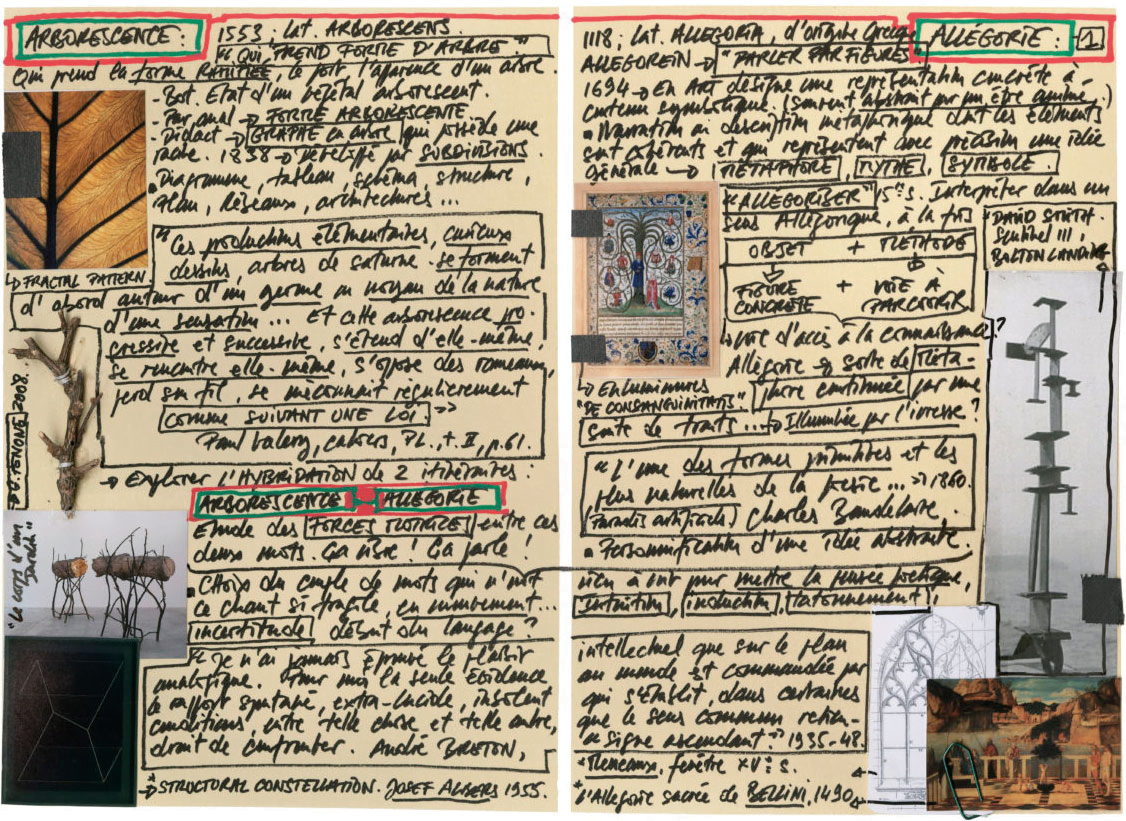 ARBORESCENCE :
1553 ; Lat. ARBORESCENS.
"QUI PREND FORME D'ARBRE"
Qui prend la forme RAMIFIÉE, le port l'apparence d'un arbre.
- Bot. Etat d'un végétal arborescent.
- Par anal → FORME ARBORESCENTE
- Didact → GRAPHE en arbre qui possède une
racine. 1838 → Développé par SUBDIVISIONS.
Diagramme, tableau, schéma, structure,
plan, réseaux, architectures...
↳ FRACTAL PATTERN
"Ces productions élémentaires, curieux
dessins, arbres de saturne se forment
d'abord autour d'un germe ou noyau de la nature
d'une sensation... Et cette arborescence pro-
gressive et successive, s'étend d'elle-même,
se rencontre elle-même, s'oppose des rameaux,
perd son fil, se méconnaît régulièrement
comme SUIVANT UNE LOI."
Paul Valéry, cahiers, PL., t. II, p. 61.
2008.
→ Explorer L'HYBRIDATION de 2 itinéraires :
ARBORESCENCE ALLÉGORIE
Etude des FORCES MOTRICES entre ces
deux mots. Ça vibre ! Ça parle !
"Le corps d'un
Choix du couple de mots qui n'ont
ce chant si fragile, en mouvement...
incertitude début du langage ?
"Je n'ai jamais éprouvé le plaisir
analogique. Pour moi la seule évidence
le rapport spontané, extra-lucide, insolent
conditions, entre telle chose et telle autre,
droit de confronter. André BRETON,
* STRUCTURAL CONSTELLATION. JOSEF ALBERS 1955.
ALLÉGORIE : 1
1118 ; Lat. ALLEGORIA, d'origine Grecque
ALLEGOREIN → "PARLER PAR FIGURES"
1694 → En Art désigne une représentation concrète à
contenu symbolique. (souvent abstrait par un être animé.)
Narration ou description métaphorique dont les éléments
sont cohérents et qui représentent avec précision une idée
générale → MÉTAPHORE, MYTHE, SYMBOLE.
"ALLÉGORISER" 15e s. Interpréter dans un
sens Allégorique, à la fois
OBJET + MÉTHODE
FIGURE + VOIE À
CONCRÈTE PARCOURIR
* DAVID SMITH.
Sentinel III,
BOLTON LANDING
↳ voie d'accès à la connaissance ?
Allégorie → sorte de Méta-
phore continuée par une
suite de traits... → Illuminée par l'ivresse ?
↳ Enluminures
"DE CONSANGUINITATIS"
"L'une des formes primitives et les
plus naturelles de la poésie..." 1860.
(Paradis artificiels) Charles Baudelaire.
Personnification d'une idée abstraite.
rien à voir pour mettre la pensée poétique,
Intuition, induction, tatonnement,
intellectuel que sur le plan
au monde est commandée par
qui s'établit, dans certaines
que le sens commun retien-
signe ascendant." 1935-48
* Meneaux, fenêtre XVe s.
* L'Allégorie sacrée de BELLINI, 1490